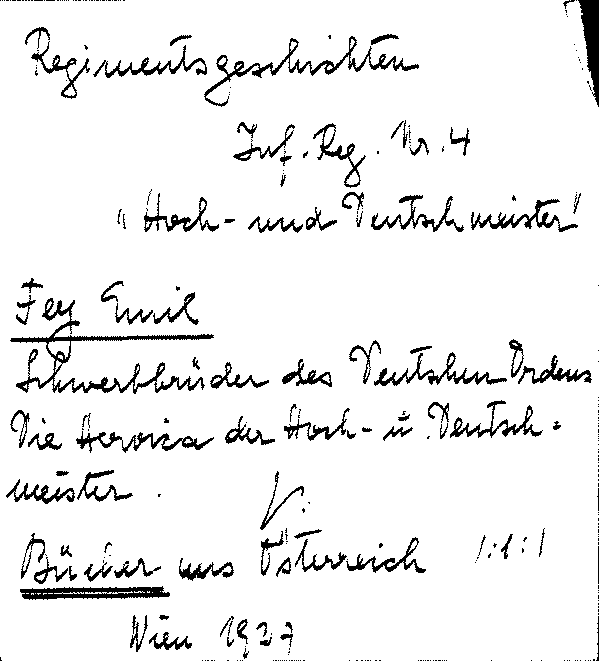 Regimentsgeschichten
Inf. Reg. Nr. 4
"Hoch- und Deutschmeister"
Fey Emil
Schwertbrüder des Deutschen Ordens
Die Heroica der Hoch- u. Deutsch-
meister.
V.
Bücher aus Österreich /:1:/
Wien 1937